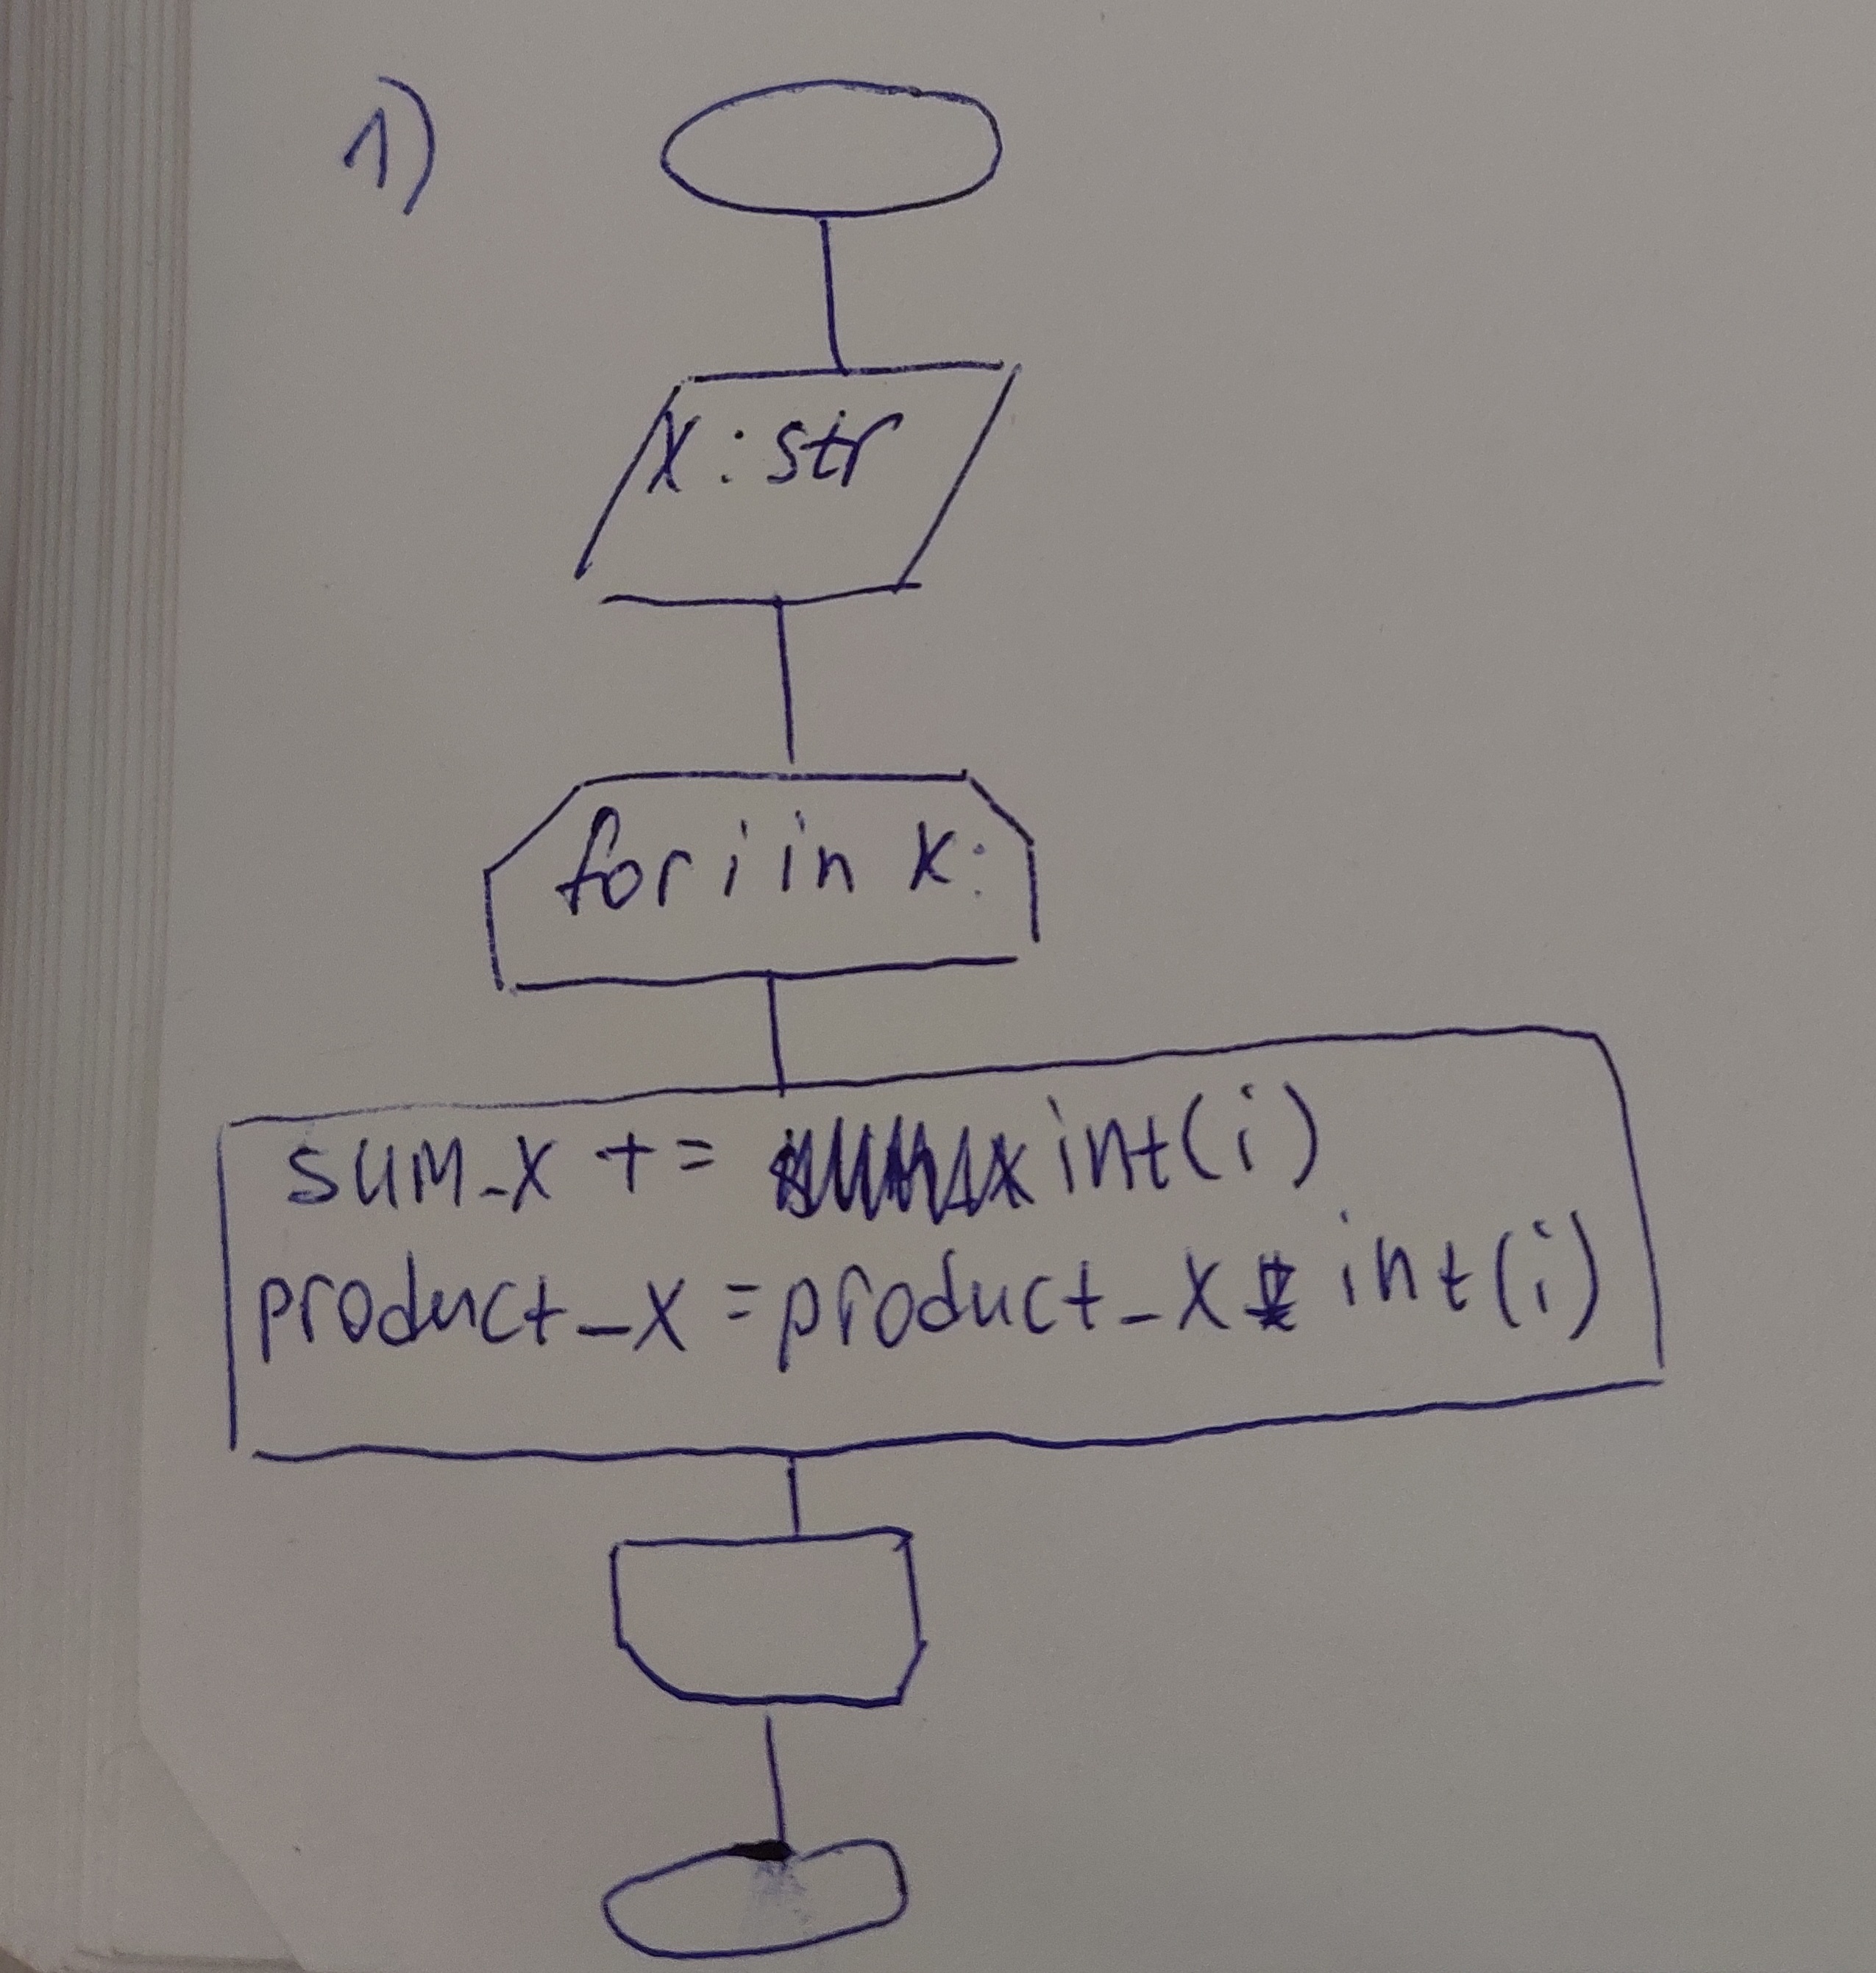 1)
x : str
for i in x:
sum_x += int(i)
product_x = product_x * int(i)